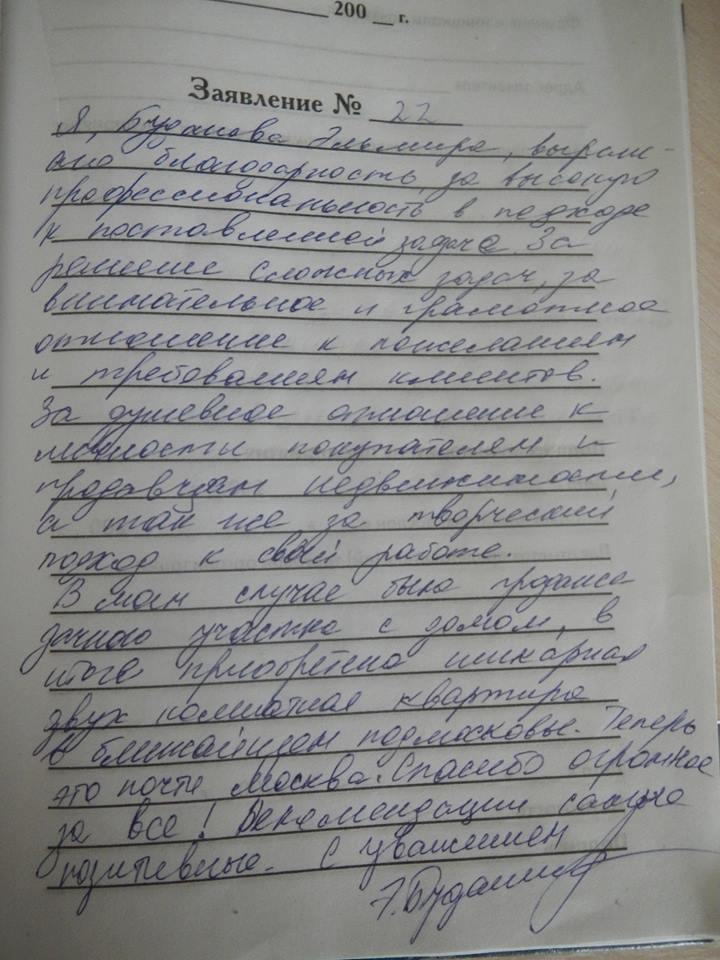 200 __ г.
Заявление № 22
Я, Буданова Эльмира, выражаю
благодарность за высокую
профессиональность в подходе
к поставленной задаче. За
решение сложных задач, за
внимательное и грамотное
отношение к пожеланиям
и требованиям клиентов.
За душевное отношение к
личности покупателем и
продавцам недвижимости,
а так же за творческий
подход к своей работе.
В моем случае была продажа
дачного участка с домом, в
итоге приобретена шикарная
двух комнатная квартира
в ближайшем подмосковье. Теперь
это почти Москва. Спасибо огромное
за все! Рекомендации самые
позитивные. С уважением
Э. Буданова